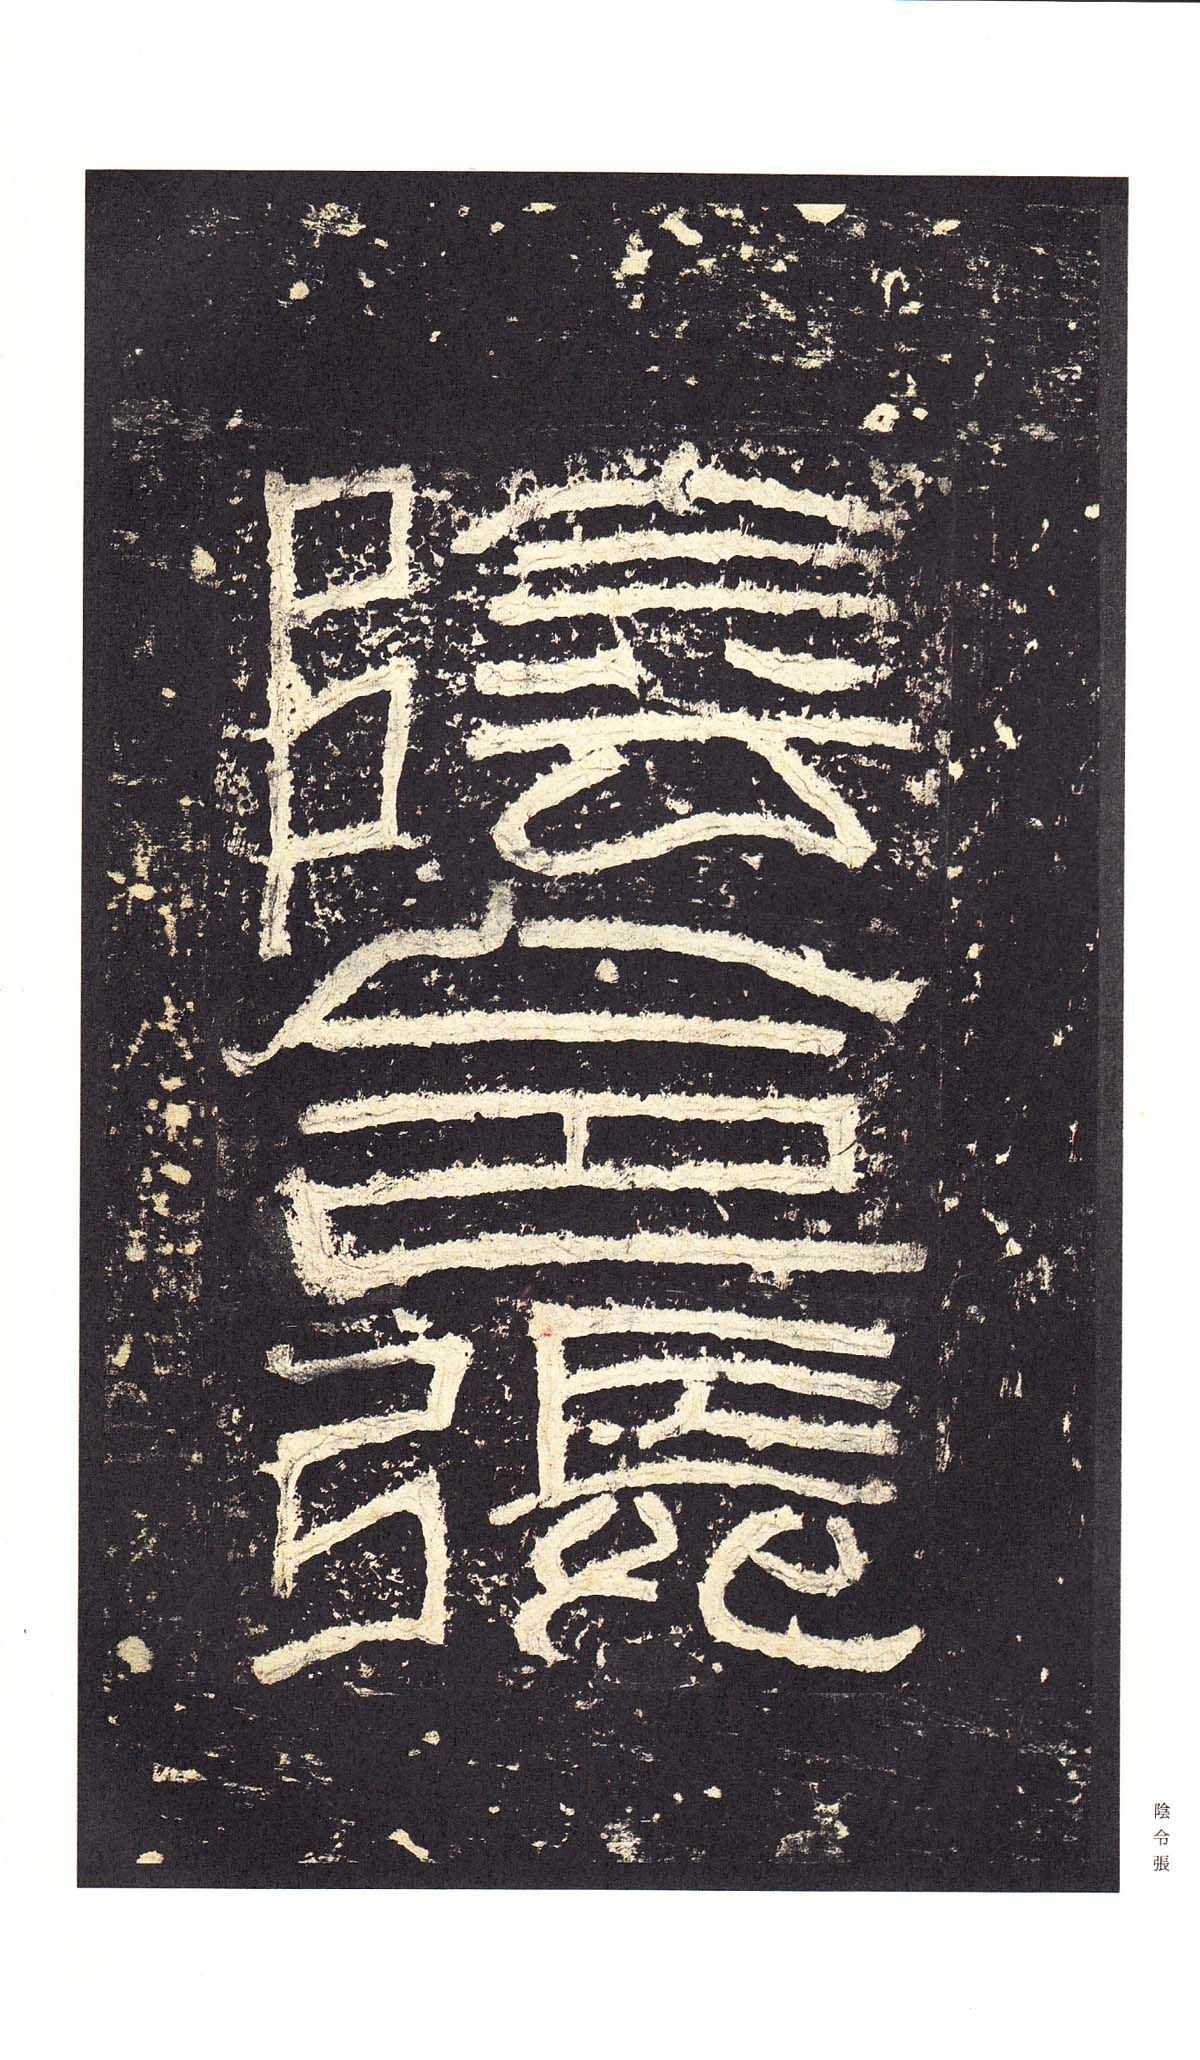 陰令張
陰令張